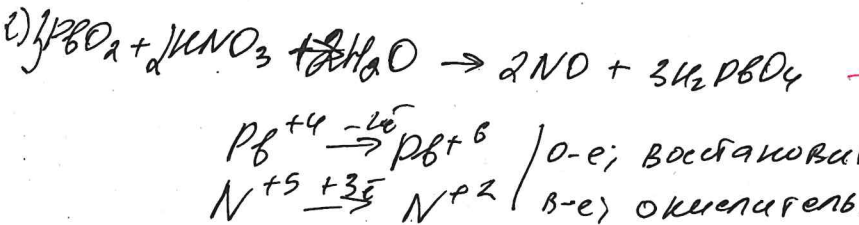 2) 3PbO₂ + 2HNO₃ + 2H₂O → 2NO + 3H₂PbO₄
Pb⁺⁴ —-2ē→ Pb⁺⁶ / о-е; восстанови
N⁺⁵ —+3ē→ N⁺² / в-е; окислитель